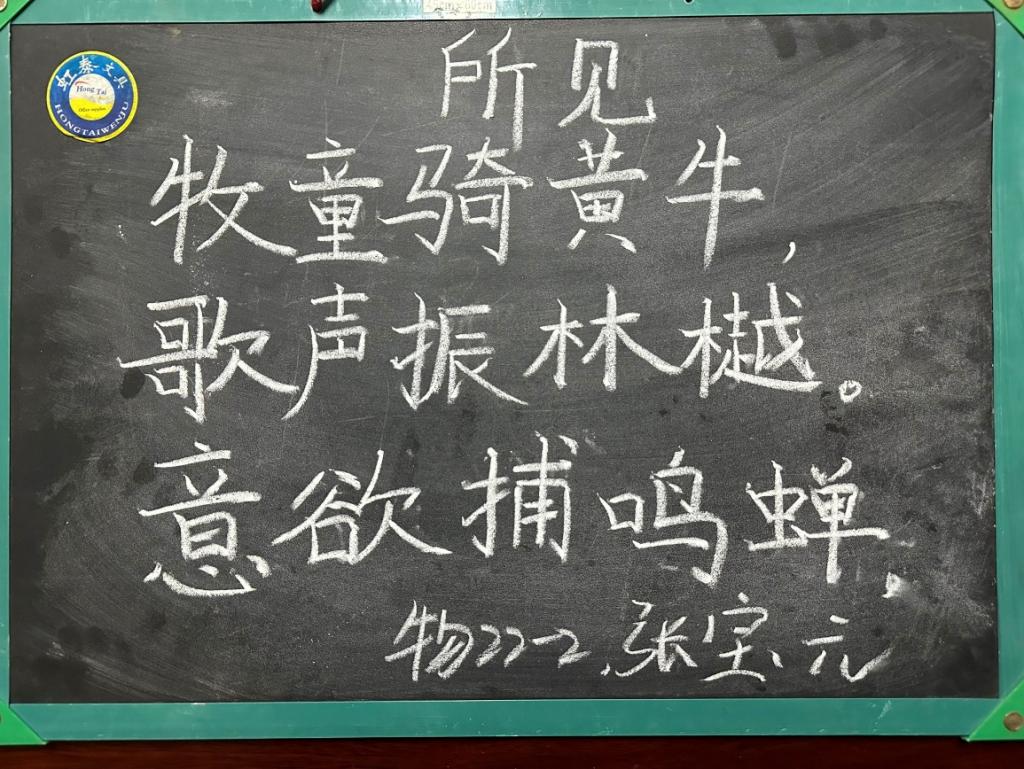 所见
牧童骑黄牛,
歌声振林樾。
意欲捕鸣蝉,
物22-2.张宝元
虹泰文具
Hong Tai
HONGTAIWENJU